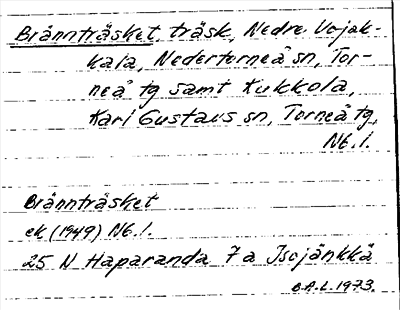 Brännträsket, träsk, Nedre Vojak-
kala, Nedertorneå sn, Tor-
neå tg samt Kukkola,
Karl Gustavs sn, Torneå tg,
Nb.l.
Brännträsket
ek (1949) Nb.l.
25 N Haparanda 7 a Isojänkkä
B.A.L. 1973.